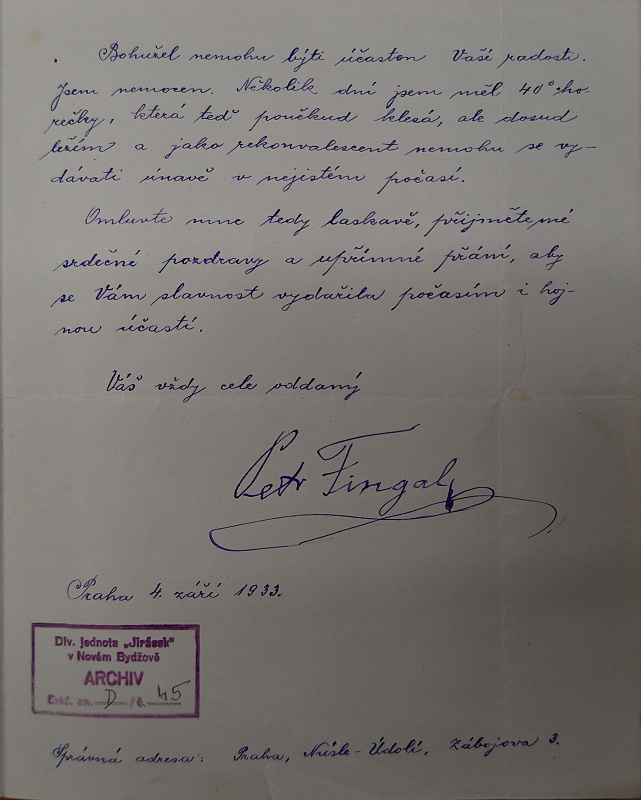 Bohužel nemohu býti účasten Vaší radosti.
Jsem nemocen. Několik dní jsem měl 40° ho-
rečky, která teď poněkud klesá, ale dosud
ležím a jako rekonvalescent nemohu se vy-
dávati únavě v nejistém počasí.
Omluvte mne tedy laskavě, přijměte mé
srdečné pozdravy a upřímné přání, aby
se Vám slavnost vydařila počasím i hoj-
nou účastí.
Váš vždy cele oddaný
Petr Fingal
Praha 4. září 1933.
Div. jednota „Jirásek"
v Novém Bydžově
ARCHIV
Evid. zn. D / č. 45
Správná adresa: Praha, Nusle-Údolí, Zábojova 3.